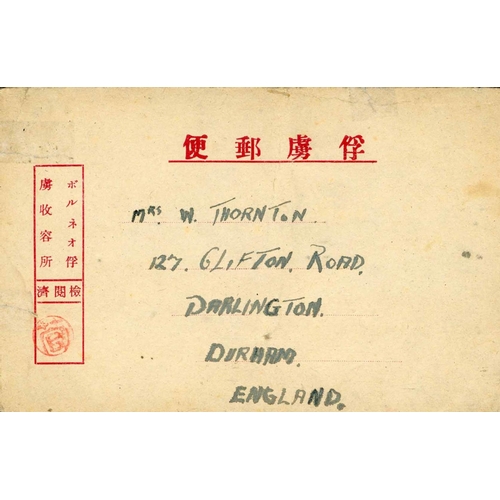 俘虜郵便
ボルネオ俘
虜收容所
檢閱濟
MRS W. THORNTON
127. CLIFTON. ROAD.
DARLINGTON.
DURHAM.
ENGLAND.